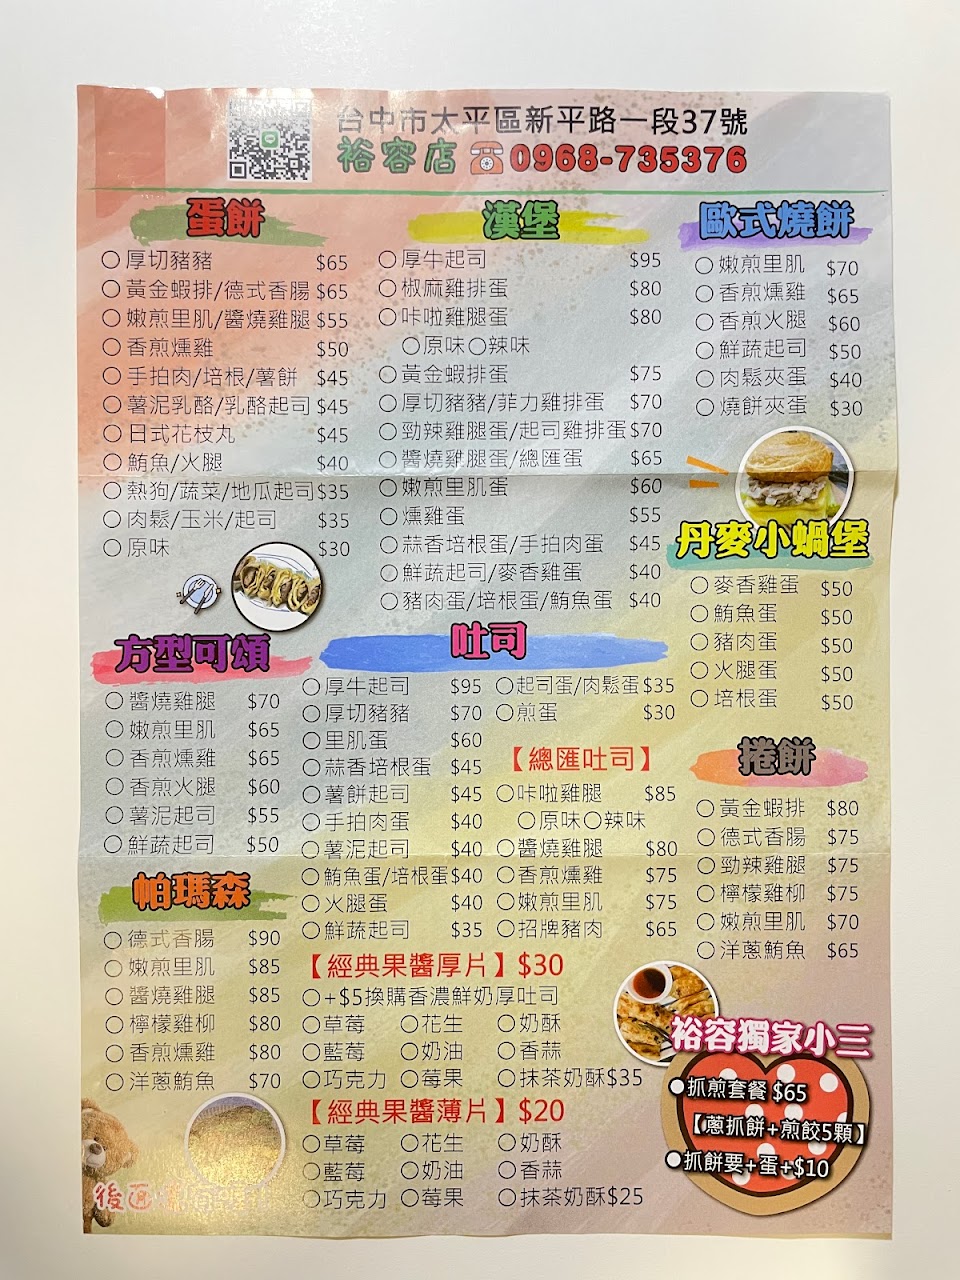 台中市太平區新平路一段37號
裕容店 ☎0968-735376
蛋餅
○厚切豬豬 $65
○黃金蝦排/德式香腸 $65
○嫩煎里肌/醬燒雞腿 $55
○香煎燻雞 $50
○手拍肉/培根/薯餅 $45
○薯泥乳酪/乳酪起司 $45
○日式花枝丸 $45
○鮪魚/火腿 $40
○熱狗/蔬菜/地瓜起司 $35
○肉鬆/玉米/起司 $35
○原味 $30
漢堡
○厚牛起司 $95
○椒麻雞排蛋 $80
○咔啦雞腿蛋 $80
○原味○辣味
○黃金蝦排蛋 $75
○厚切豬豬/菲力雞排蛋 $70
○勁辣雞腿蛋/起司雞排蛋 $70
○醬燒雞腿蛋/總匯蛋 $65
○嫩煎里肌蛋 $60
○燻雞蛋 $55
○蒜香培根蛋/手拍肉蛋 $45
○鮮蔬起司/麥香雞蛋 $40
○豬肉蛋/培根蛋/鮪魚蛋 $40
歐式燒餅
○嫩煎里肌 $70
○香煎燻雞 $65
○香煎火腿 $60
○鮮蔬起司 $50
○肉鬆夾蛋 $40
○燒餅夾蛋 $30
丹麥小蝸堡
○麥香雞蛋 $50
○鮪魚蛋 $50
○豬肉蛋 $50
○火腿蛋 $50
○培根蛋 $50
方型可頌
○醬燒雞腿 $70
○嫩煎里肌 $65
○香煎燻雞 $65
○香煎火腿 $60
○薯泥起司 $55
○鮮蔬起司 $50
吐司
○厚牛起司 $95
○厚切豬豬 $70
○里肌蛋 $60
○蒜香培根蛋 $45
○薯餅起司 $45
○手拍肉蛋 $40
○薯泥起司 $40
○鮪魚蛋/培根蛋 $40
○火腿蛋 $40
○鮮蔬起司 $35
○起司蛋/肉鬆蛋 $35
○煎蛋 $30
【總匯吐司】
○咔啦雞腿 $85
○原味○辣味
○醬燒雞腿 $80
○香煎燻雞 $75
○嫩煎里肌 $75
○招牌豬肉 $65
捲餅
○黃金蝦排 $80
○德式香腸 $75
○勁辣雞腿 $75
○檸檬雞柳 $75
○嫩煎里肌 $70
○洋蔥鮪魚 $65
帕瑪森
○德式香腸 $90
○嫩煎里肌 $85
○醬燒雞腿 $85
○檸檬雞柳 $80
○香煎燻雞 $80
○洋蔥鮪魚 $70
【經典果醬厚片】$30
○+$5換購香濃鮮奶厚吐司
○草莓 ○花生 ○奶酥
○藍莓 ○奶油 ○香蒜
○巧克力 ○莓果 ○抹茶奶酥$35
【經典果醬薄片】$20
○草莓 ○花生 ○奶酥
○藍莓 ○奶油 ○香蒜
○巧克力 ○莓果 ○抹茶奶酥$25
裕容獨家小三
●抓煎套餐 $65
【蔥抓餅+煎餃5顆】
●抓餅要+蛋+$10
後面